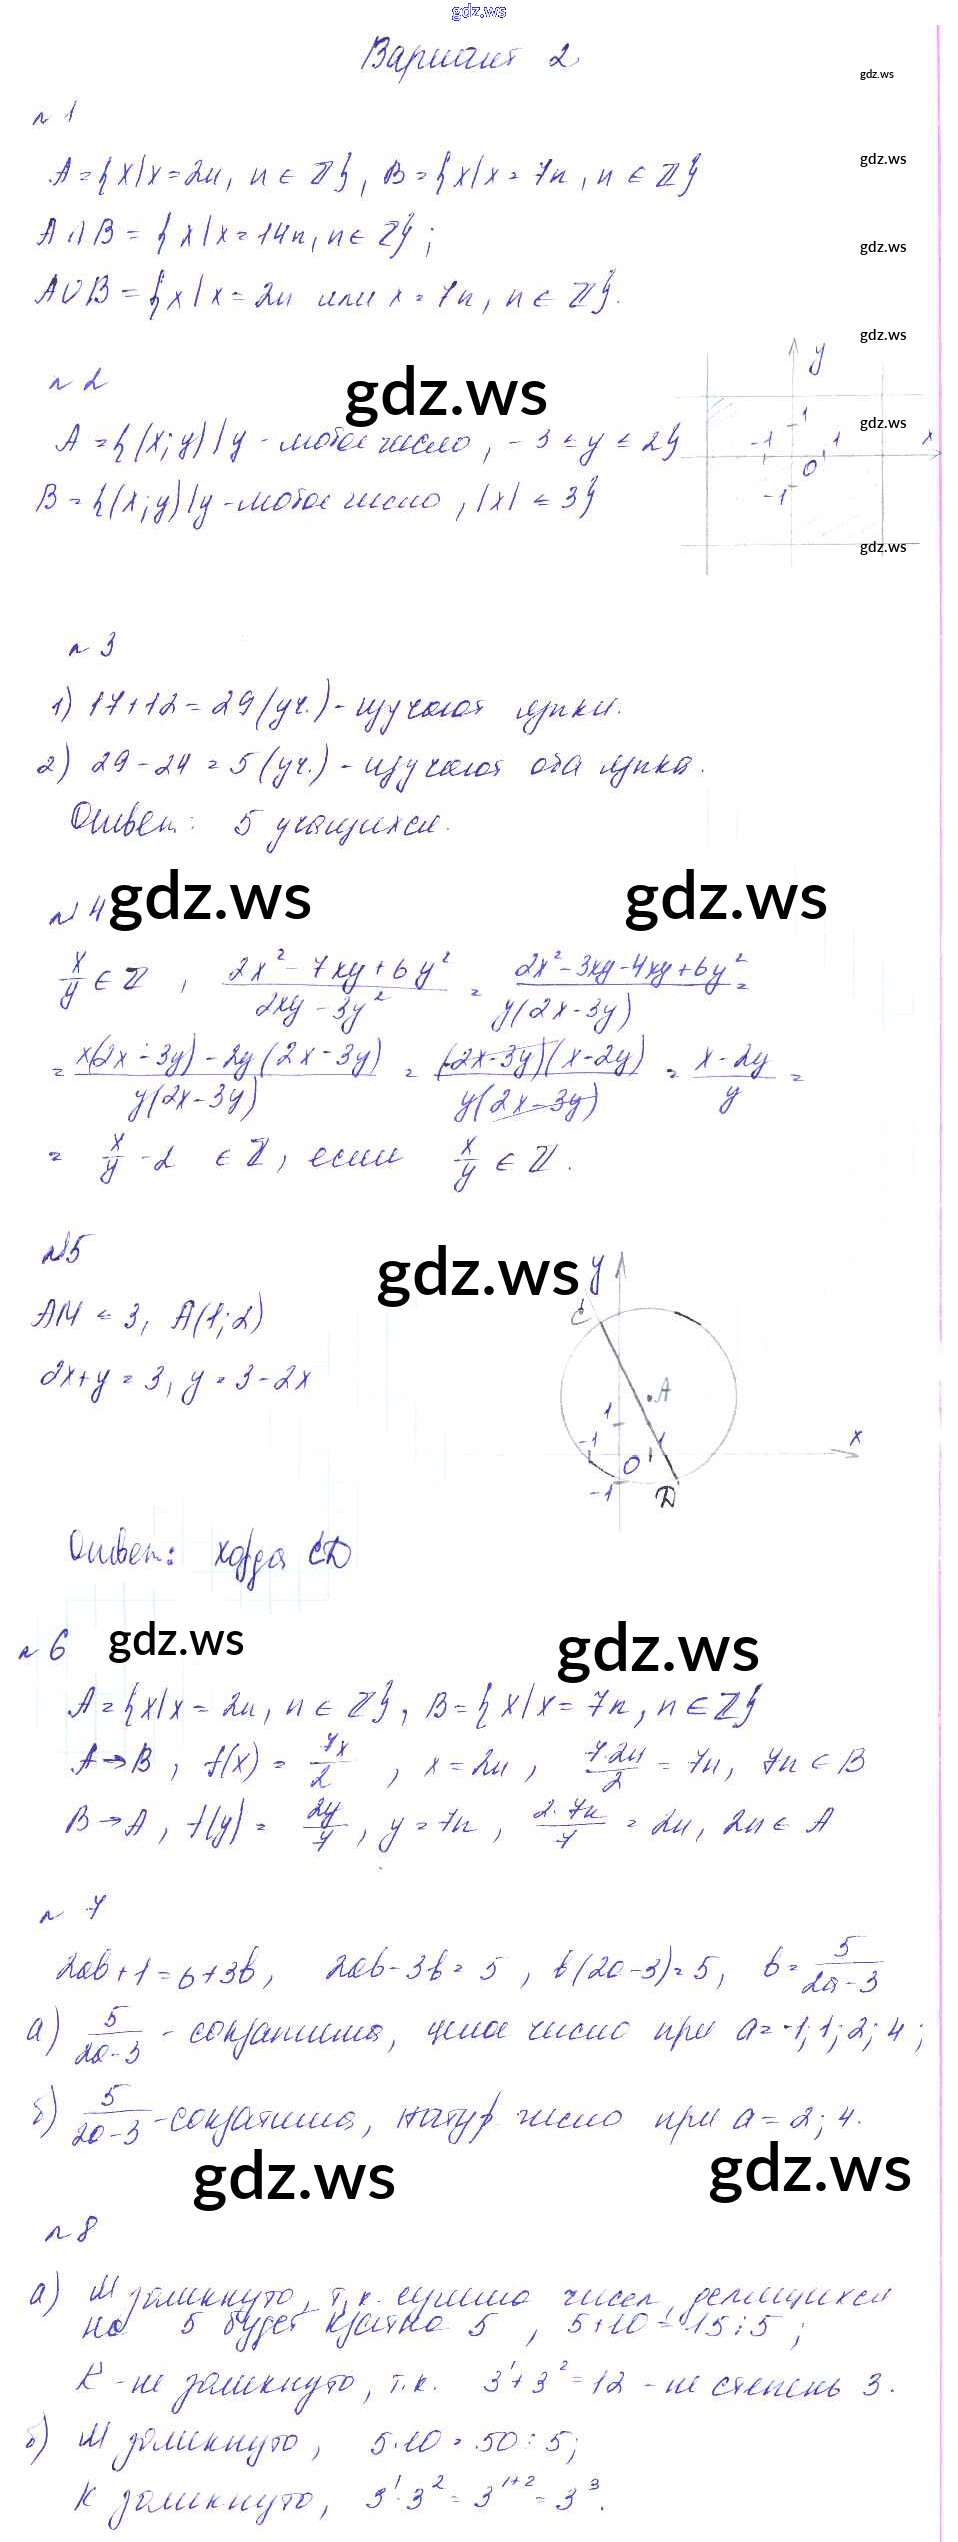 gdz.ws
Вариант 2
gdz.ws
№ 1
gdz.ws
A = {x/x = 2n, n ∈ Z}, B = {x/x = 7n, n ∈ Z}
A ∩ B = {x/x = 14n, n ∈ Z};
gdz.ws
A ∪ B = {x/x = 2n или x = 7n, n ∈ Z}.
gdz.ws
y
№ 2
gdz.ws
1
gdz.ws
A = {(x;y)/y - любое число, -3 ≤ y ≤ 2}
-1 0 1 x
-1
B = {(x;y)/y - любое число, |x| ≤ 3}
gdz.ws
№ 3
1) 17+12 = 29 (уч.) - изучают языки.
2) 29 - 24 = 5 (уч.) - изучают оба языка.
Ответ: 5 учащихся.
№ 4
gdz.ws gdz.ws
x/y ∈ Z, (2x² - 7xy + 6y²)/(2xy - 3y²) = (2x² - 3xy - 4xy + 6y²)/(y(2x - 3y)) =
= (x(2x - 3y) - 2y(2x - 3y))/(y(2x - 3y)) = ((2x - 3y)(x - 2y))/(y(2x - 3y)) = (x - 2y)/y =
= x/y - 2 ∈ Z, если x/y ∈ Z.
№5
gdz.ws
y
C
AM ≤ 3, A(1;2)
2x+y = 3, y = 3 - 2x
A
1
-1 0 1 x
-1 D
Ответ: хорда CD
№ 6
gdz.ws gdz.ws
A = {x/x = 2n, n ∈ Z}, B = {x/x = 7n, n ∈ Z}
A → B, f(x) = 7x/2, x = 2n, 7·2n/2 = 7n, 7n ∈ B
B → A, f(y) = 2y/7, y = 7n, 2·7n/7 = 2n, 2n ∈ A
№ 7
2ab+1 = 6+3b, 2ab - 3b = 5, b(2a - 3) = 5, b = 5/(2a - 3)
а) 5/(2a - 3) - сократима, целое число при a = -1; 1; 2; 4;
б) 5/(2a - 3) - сократима, натур число при a = 2; 4.
gdz.ws gdz.ws
№ 8
а) M замкнуто, т.к. сумма чисел, делящихся
на 5 будет кратна 5, 5+10 = 15 ⋮ 5;
K - не замкнуто, т.к. 3¹+3² = 12 - не степень 3.
б) M замкнуто, 5·10 = 50 ⋮ 5;
K замкнуто, 3¹·3² = 3¹⁺² = 3³.